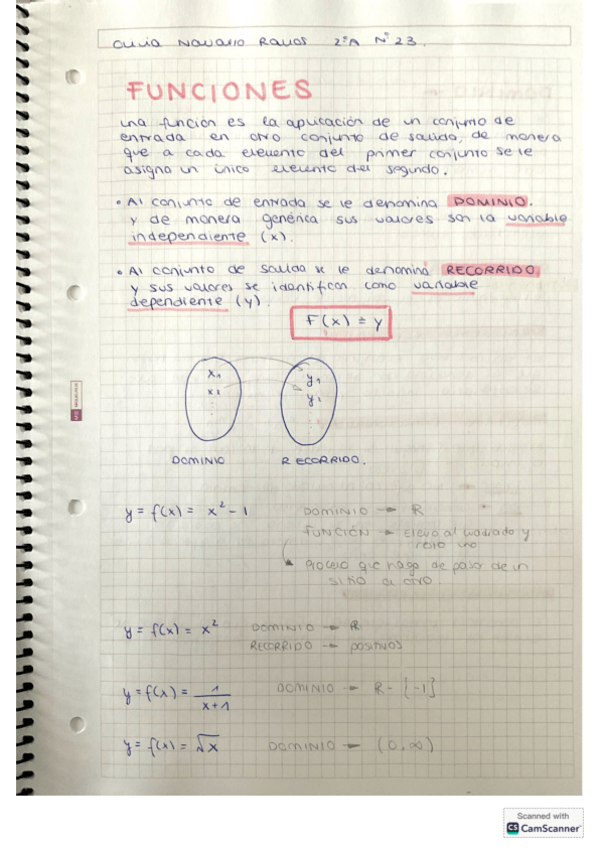 Olivia Navarro Ramos 2ºA Nº 23.
FUNCIONES
una función es la aplicación de un conjunto de
entrada en otro conjunto de salida, de manera
que a cada elemento del primer conjunto se le
asigna un único elemento del segundo.
• Al conjunto de entrada se le denomina DOMINIO.
y de manera genérica sus valores son la variable
independiente (x).
• Al conjunto de salida se le denomina RECORRIDO
y sus valores se identifican como variable
dependiente (y).
F(x) = y
x₁ y₁
x₂ y₂
DOMINIO RECORRIDO.
y = f(x) = x² - 1 DOMINIO → R
FUNCIÓN → Elevo al cuadrado y
resto uno
Proceso que hago de pasar de un
sitio a otro.
y = f(x) = x² DOMINIO → R
RECORRIDO → positivos
y = f(x) = 1/(x+1) DOMINIO → R - {-1}
y = f(x) = √x DOMINIO → (0,∞)
Scanned with
CS CamScanner